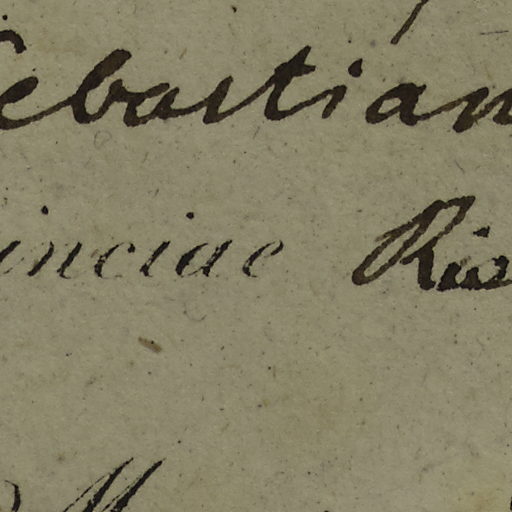 Sebastian
inciae Rio